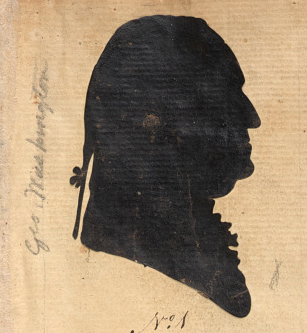 Geo Washington
No. 1